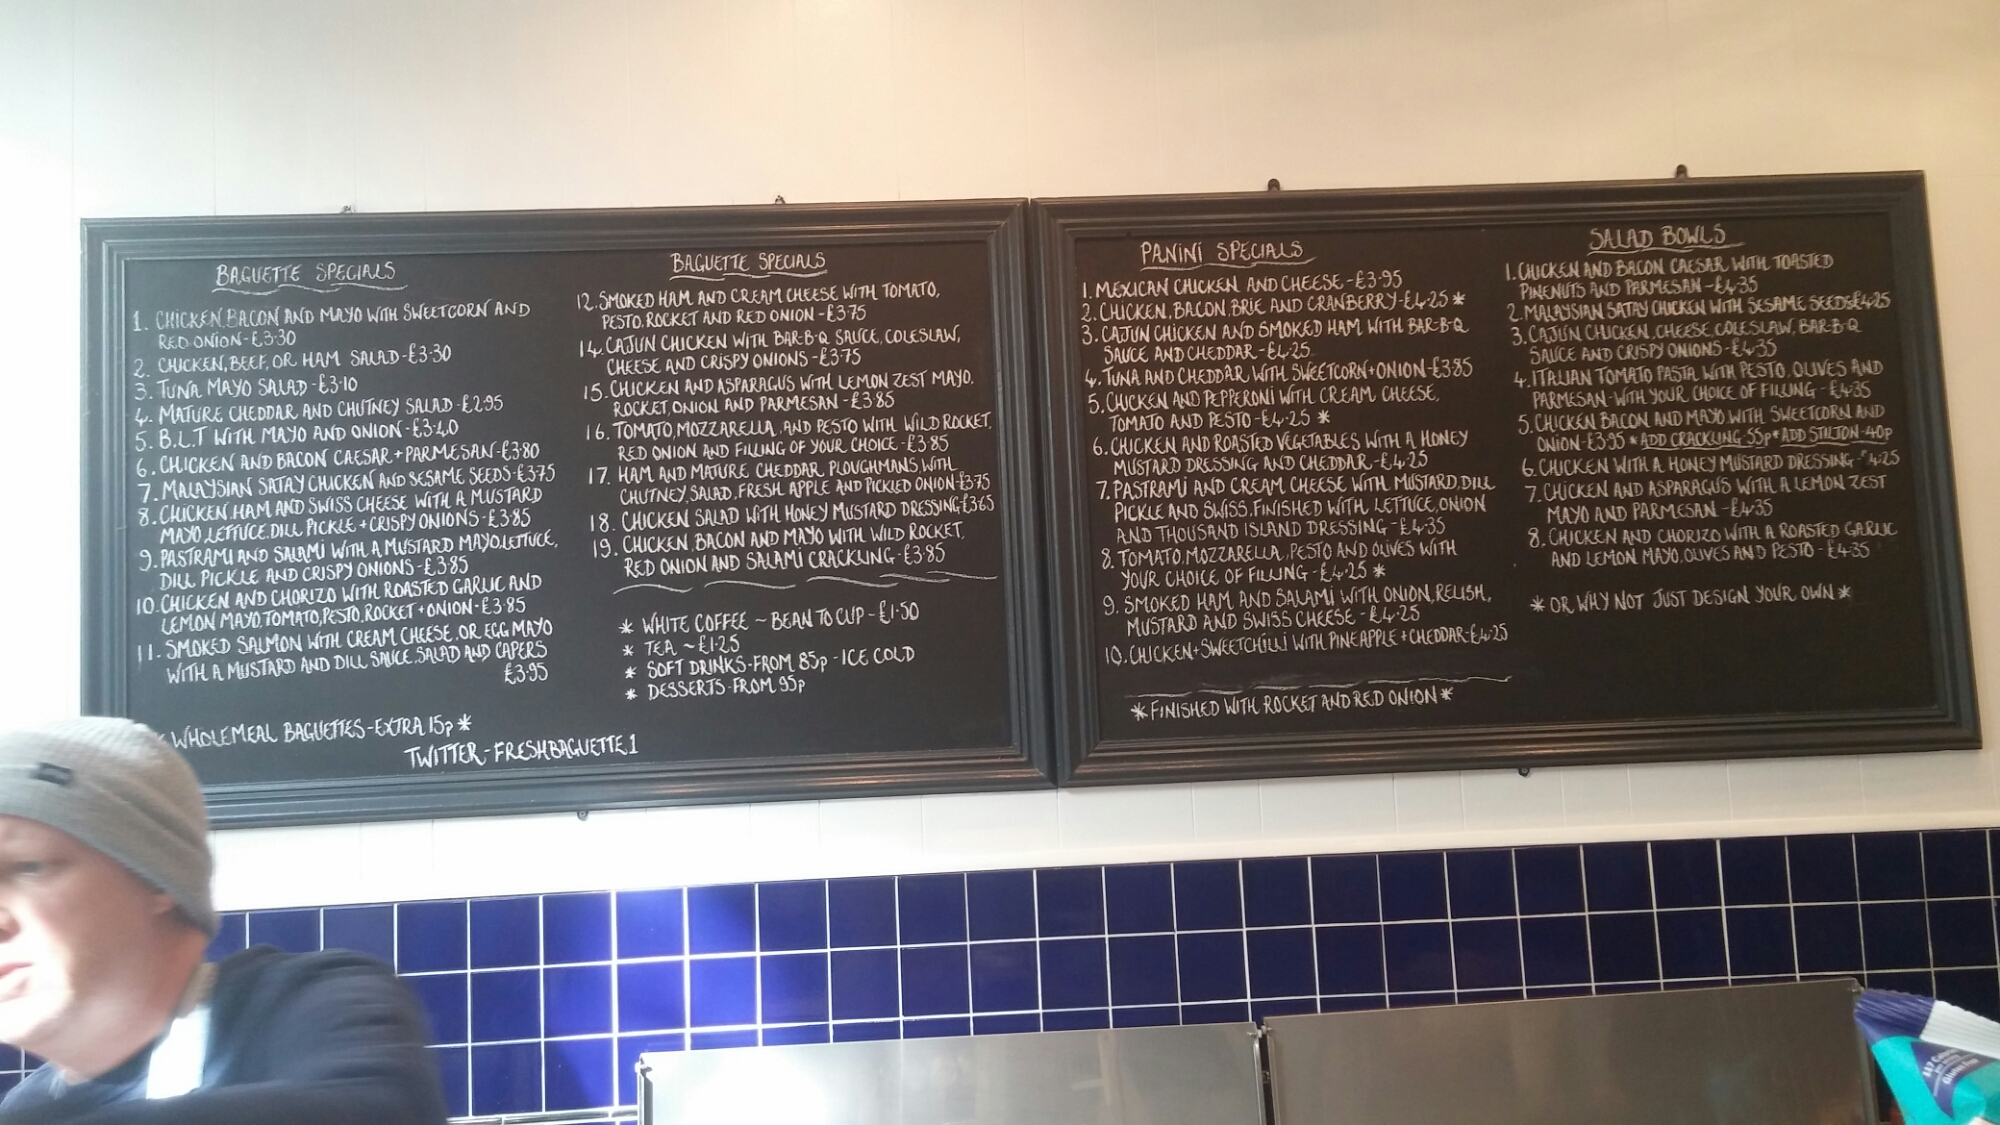 BAGUETTE SPECIALS
1. CHICKEN, BACON AND MAYO WITH SWEETCORN AND
RED ONION - £3.30
2. CHICKEN, BEEF, OR HAM SALAD - £3.30
3. TUNA MAYO SALAD - £3.10
4. MATURE CHEDDAR AND CHUTNEY SALAD - £2.95
5. B.L.T WITH MAYO AND ONION - £3.40
6. CHICKEN AND BACON CAESAR + PARMESAN - £3.80
7. MALAYSIAN SATAY CHICKEN AND SESAME SEEDS - £3.75
8. CHICKEN, HAM AND SWISS CHEESE WITH A MUSTARD
MAYO, LETTUCE, DILL PICKLE + CRISPY ONIONS - £3.85
9. PASTRAMI AND SALAMI WITH A MUSTARD MAYO, LETTUCE,
DILL PICKLE AND CRISPY ONIONS - £3.85
10. CHICKEN AND CHORIZO WITH ROASTED GARLIC AND
LEMON MAYO, TOMATO, PESTO, ROCKET + ONION - £3.85
11. SMOKED SALMON WITH CREAM CHEESE, OR EGG MAYO
WITH A MUSTARD AND DILL SAUCE, SALAD AND CAPERS
£3.95
WHOLEMEAL BAGUETTES - EXTRA 15p *
TWITTER - FRESHBAGUETTE1
BAGUETTE SPECIALS
12. SMOKED HAM AND CREAM CHEESE WITH TOMATO,
PESTO, ROCKET AND RED ONION - £3.75
14. CAJUN CHICKEN WITH BAR-B-Q SAUCE, COLESLAW,
CHEESE AND CRISPY ONIONS - £3.75
15. CHICKEN AND ASPARAGUS WITH LEMON ZEST MAYO,
ROCKET, ONION AND PARMESAN - £3.85
16. TOMATO, MOZZARELLA, AND PESTO WITH WILD ROCKET,
RED ONION AND FILLING OF YOUR CHOICE - £3.85
17. HAM AND MATURE CHEDDAR PLOUGHMANS WITH
CHUTNEY, SALAD, FRESH APPLE AND PICKLED ONION - £3.75
18. CHICKEN SALAD WITH HONEY MUSTARD DRESSING - £3.65
19. CHICKEN, BACON AND MAYO WITH WILD ROCKET,
RED ONION AND SALAMI CRACKLING - £3.85
* WHITE COFFEE ~ BEAN TO CUP - £1.50
* TEA ~ £1.25
* SOFT DRINKS - FROM 85p - ICE COLD
* DESSERTS - FROM 95p
PANINI SPECIALS
1. MEXICAN CHICKEN AND CHEESE - £3.95
2. CHICKEN, BACON, BRIE AND CRANBERRY - £4.25 *
3. CAJUN CHICKEN AND SMOKED HAM WITH BAR-B-Q
SAUCE AND CHEDDAR - £4.25
4. TUNA AND CHEDDAR WITH SWEETCORN + ONION - £3.85
5. CHICKEN AND PEPPERONI WITH CREAM CHEESE,
TOMATO AND PESTO - £4.25 *
6. CHICKEN AND ROASTED VEGETABLES WITH A HONEY
MUSTARD DRESSING AND CHEDDAR - £4.25
7. PASTRAMI AND CREAM CHEESE WITH MUSTARD, DILL
PICKLE AND SWISS, FINISHED WITH LETTUCE, ONION
AND THOUSAND ISLAND DRESSING - £4.35
8. TOMATO, MOZZARELLA, PESTO AND OLIVES WITH
YOUR CHOICE OF FILLING - £4.25 *
9. SMOKED HAM AND SALAMI WITH ONION, RELISH,
MUSTARD AND SWISS CHEESE - £4.25
10. CHICKEN + SWEETCHILLI WITH PINEAPPLE + CHEDDAR - £4.25
* FINISHED WITH ROCKET AND RED ONION *
SALAD BOWLS
1. CHICKEN AND BACON CAESAR WITH TOASTED
PINENUTS AND PARMESAN - £4.35
2. MALAYSIAN SATAY CHICKEN WITH SESAME SEEDS £4.25
3. CAJUN CHICKEN, CHEESE, COLESLAW, BAR-B-Q
SAUCE AND CRISPY ONIONS - £4.35
4. ITALIAN TOMATO PASTA WITH PESTO, OLIVES AND
PARMESAN - WITH YOUR CHOICE OF FILLING - £4.35
5. CHICKEN BACON AND MAYO WITH SWEETCORN AND
ONION - £3.95 * ADD CRACKLING 55p * ADD STILTON 40p
6. CHICKEN WITH A HONEY MUSTARD DRESSING - £4.25
7. CHICKEN AND ASPARAGUS WITH A LEMON ZEST
MAYO AND PARMESAN - £4.35
8. CHICKEN AND CHORIZO WITH A ROASTED GARLIC
AND LEMON MAYO, OLIVES AND PESTO - £4.35
* OR WHY NOT JUST DESIGN YOUR OWN *